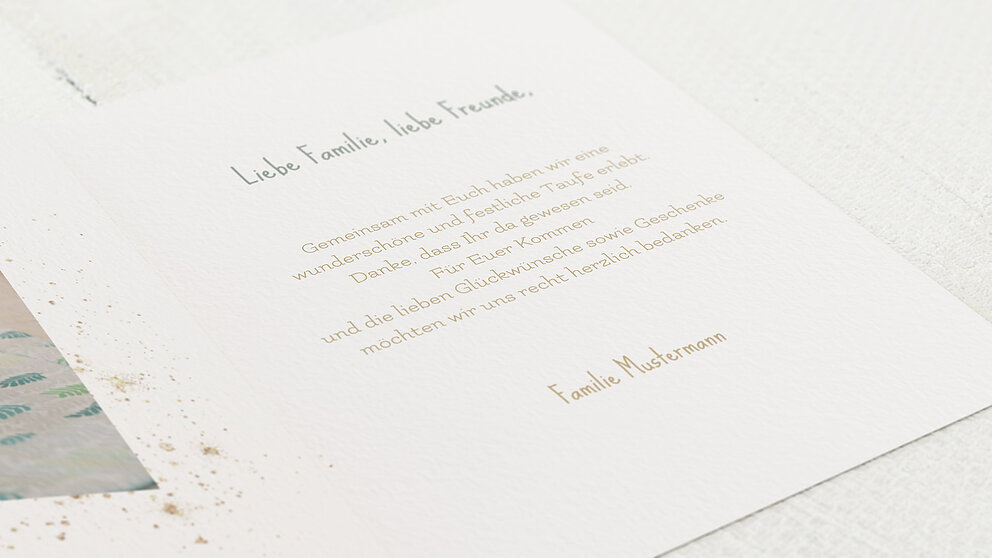 Liebe Familie, liebe Freunde,
Gemeinsam mit Euch haben wir eine
wunderschöne und festliche Taufe erlebt.
Danke, dass Ihr da gewesen seid.
Für Euer Kommen
und die lieben Glückwünsche sowie Geschenke
möchten wir uns recht herzlich bedanken.
Familie Mustermann